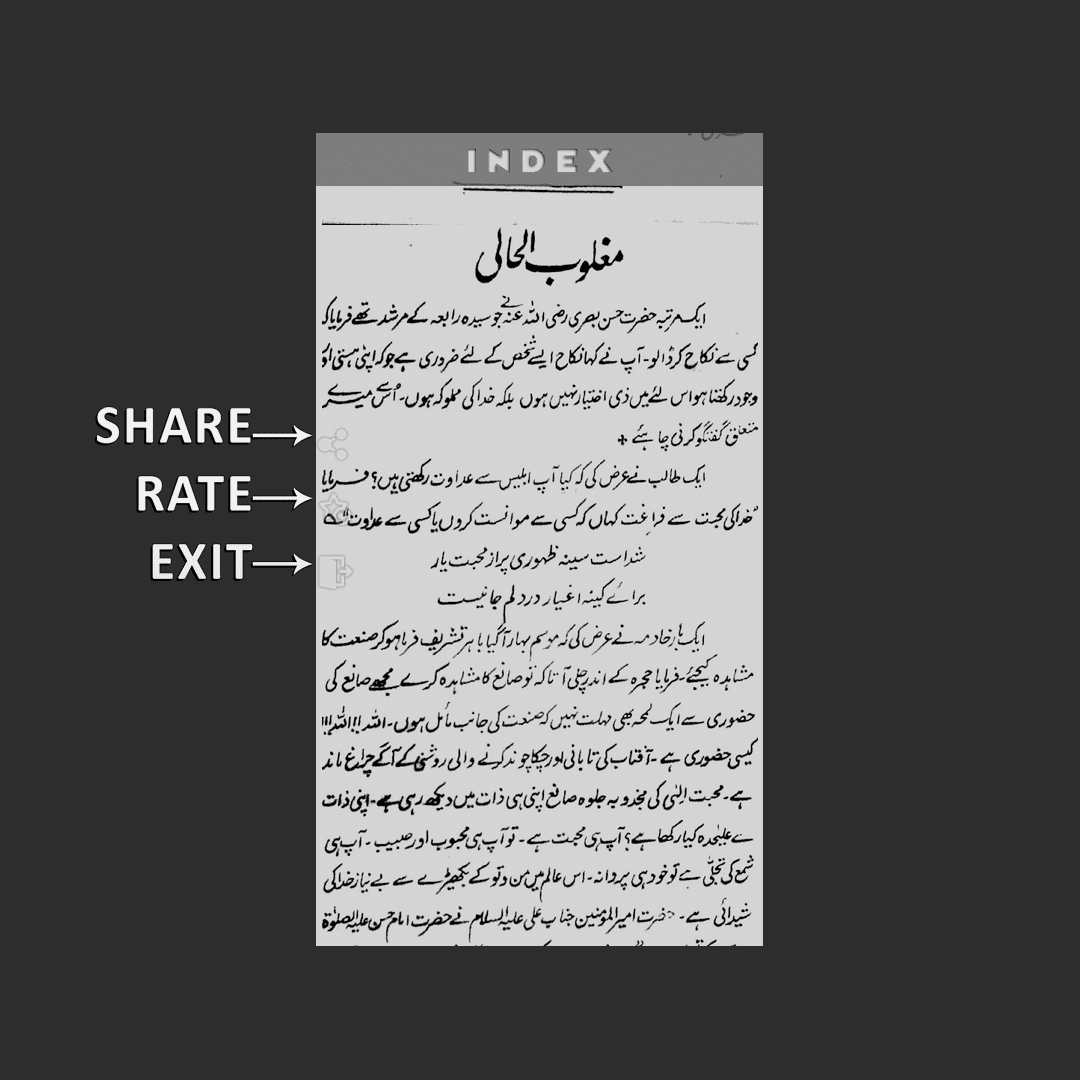 INDEX
مغلوب الحالی
ایک مرتبہ حضرت حسن بصری رضی اللہ عنہ نے جو سیدہ رابعہ کے مرشد تھے فرمایا کہ
کسی سے نکاح کر ڈالو۔ آپ نے کہا نکاح ایسے شخص کے لئے ضروری ہے جو کہ اپنی ہستی اور
وجود رکھتا ہو اس لئے میں ذی اختیار نہیں ہوں بلکہ خدا کی مملوکہ ہوں۔ اُس سے میرے
متعلق گفتگو کرنی چاہئے
SHARE
ایک طالب نے عرض کی کہ کیا آپ ابلیس سے عداوت رکھتی ہیں؟ فرمایا
RATE
"خدا کی محبت سے فراغت کہاں کہ کسی سے موانست کروں یا کسی سے عداوت" ؎
شداست سینہ ظہوری پر از محبت یار
EXIT
برائے کینہ اغیار در دلم جا نیست
ایک بار خادمہ نے عرض کی کہ موسم بہار آگیا باہر تشریف فرما ہو کر صنعت کا
مشاہدہ کیجئے۔ فرمایا حجرہ کے اندر چلی آ تاکہ تو صانع کا مشاہدہ کرے مجھے صانع کی
حضوری سے ایک لمحہ بھی مہلت نہیں کہ صنعت کی جانب مائل ہوں۔ اللہ!!اللہ!!!
کیسی حضوری ہے۔ آفتاب کی تابانی اور چکاچوند کرنے والی روشنی کے آگے چراغ ماند
ہے۔ محبت الٰہی کی مجذوبہ جلوہ صانع اپنی ہی ذات میں دیکھ رہی ہے۔ اپنی ذات
سے علیٰحدہ کیا رکھا ہے؟ آپ ہی محبت ہے۔ تو آپ ہی محبوب اور حبیب۔ آپ ہی
شمع کی تجلّی ہے تو خود ہی پروانہ۔ اس عالم میں من و تو کے بکھیڑے سے بے نیاز خدا کی
شیدائی ہے۔ حضرت امیرالمؤمنین جناب علی علیہ السلام نے حضرت امام حسن علیہ الصلوٰۃ